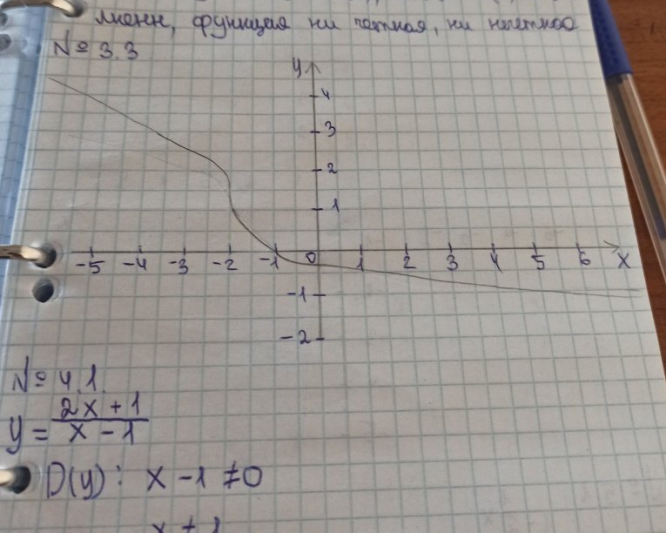 лненн, функция ни чётная, ни нечётная
№ 3.3
y
4
3
2
1
-5 -4 -3 -2 -1 0 1 2 3 4 5 6 x
-1
-2
№ 4.1
y = (2x + 1)/(x - 1)
D(y): x - 1 ≠ 0
x ≠ 1